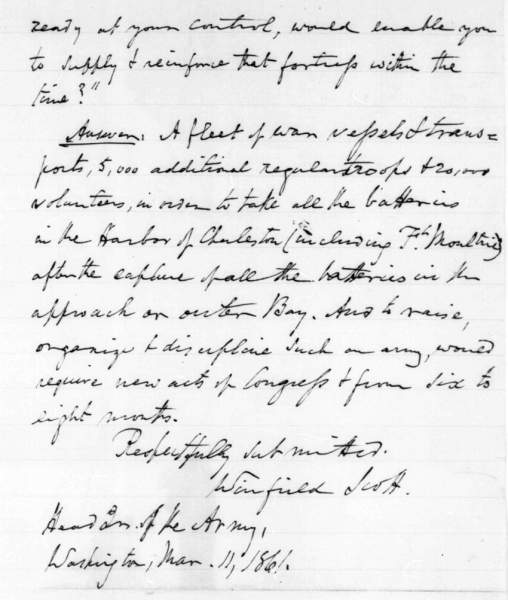 ready at your control, would enable you
to supply & reinforce that fortress within the
time?"
Answer: A fleet of war vessels & trans=
ports, 5,000 additional regular troops & 20,000
volunteers, in order to take all the batteries
in the Harbor of Charleston (including Ft. Moultrie)
after the capture of all the batteries in the
approach or outer Bay. And to raise,
organize & discipline such an army, would
require new acts of Congress & from six to
eight months.
Respectfully submitted.
Winfield Scott.
Head Qrs. of the Army,
Washington, Mar. 11, 1861.